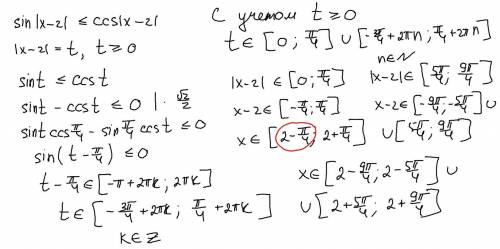 sin|x-2| ≤ cos|x-2|
|x-2| = t, t ≥ 0
sin t ≤ cos t
sin t - cos t ≤ 0 | · √2/2
sin t cos π/4 - sin π/4 cos t ≤ 0
sin(t - π/4) ≤ 0
t - π/4 ∈ [-π + 2πk; 2πk]
t ∈ [-3π/4 + 2πk; π/4 + 2πk]
k ∈ Z
С учетом t ≥ 0
t ∈ [0; π/4] ∪ [-3π/4 + 2πn; π/4 + 2πn]
n ∈ N
|x-2| ∈ [0; π/4]
x-2 ∈ [-π/4; π/4]
x ∈ [2 - π/4; 2 + π/4]
|x-2| ∈ [5π/4; 9π/4]
x-2 ∈ [-9π/4; -5π/4] ∪
∪ [5π/4; 9π/4]
x ∈ [2 - 9π/4; 2 - 5π/4] ∪
∪ [2 + 5π/4; 2 + 9π/4]